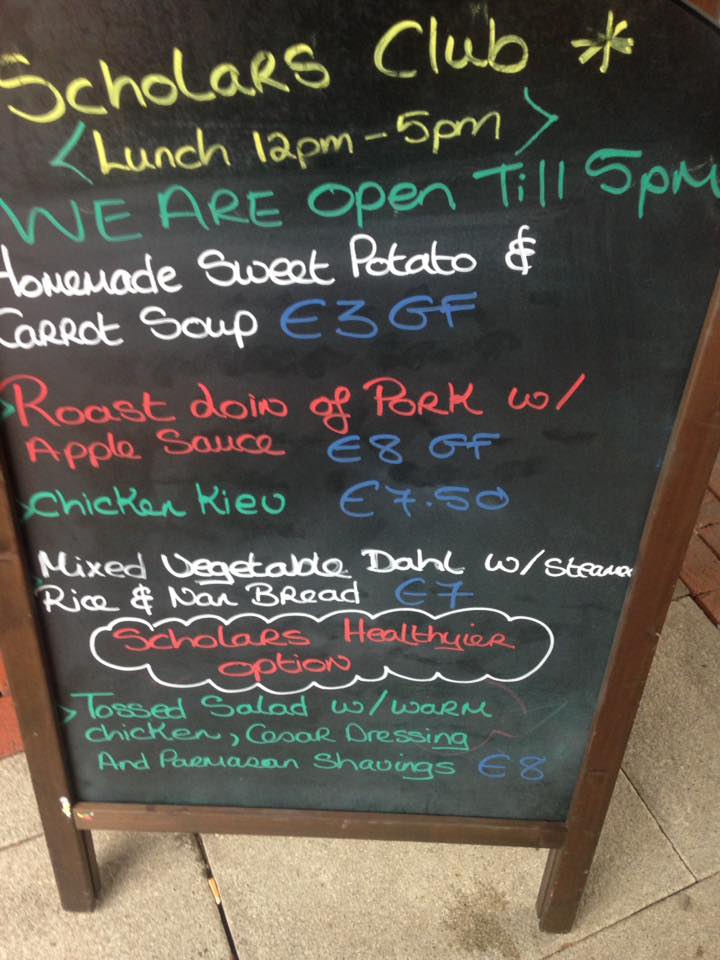 Scholars Club *
< Lunch 12pm - 5pm >
WE ARE Open Till 5pm
Homemade Sweet Potato &
Carrot Soup €3 GF
> Roast Loin of Pork w/
Apple Sauce €8 GF
> Chicken Kiev €7.50
Mixed Vegetable Dahl w/ Steamed
Rice & Nan Bread €7
Scholars Healthyier
option
> Tossed Salad w/ warm
chicken, Cesar Dressing
And Parmasan Shavings €8